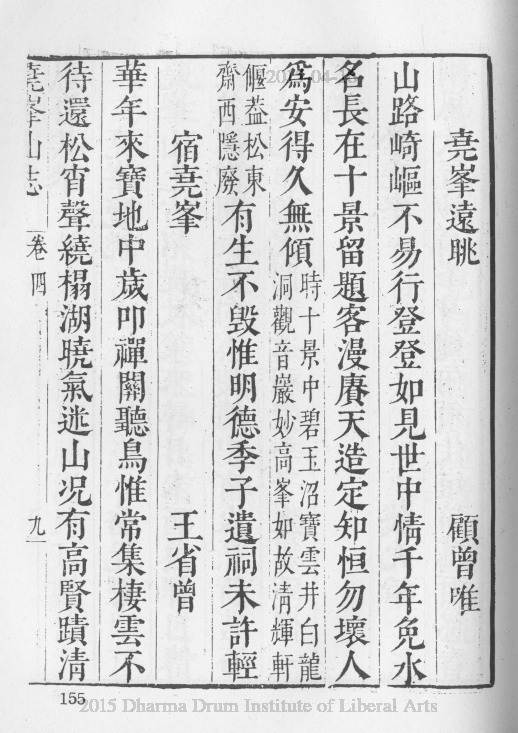 堯峯遠眺　顧曾唯
山路崎嶇不易行登登如見世中情千年免水
名長在十景留題客漫賡天造定知恒勿壞人
爲安得久無傾時十景中碧玉沼寶雲井白龍
洞觀音巖妙高峯如故清輝軒
偃蓋松東
齋西隱廢有生不毀惟明德季子遺祠未許輕
宿堯峯　王省曾
華年來寶地中歲叩禪關聽鳥惟常集棲雲不
待還松宵聲繞榻湖曉氣迷山况有高賢蹟清
堯峯山志　卷四　九
155
2015 Dharma Drum Institute of Liberal Arts